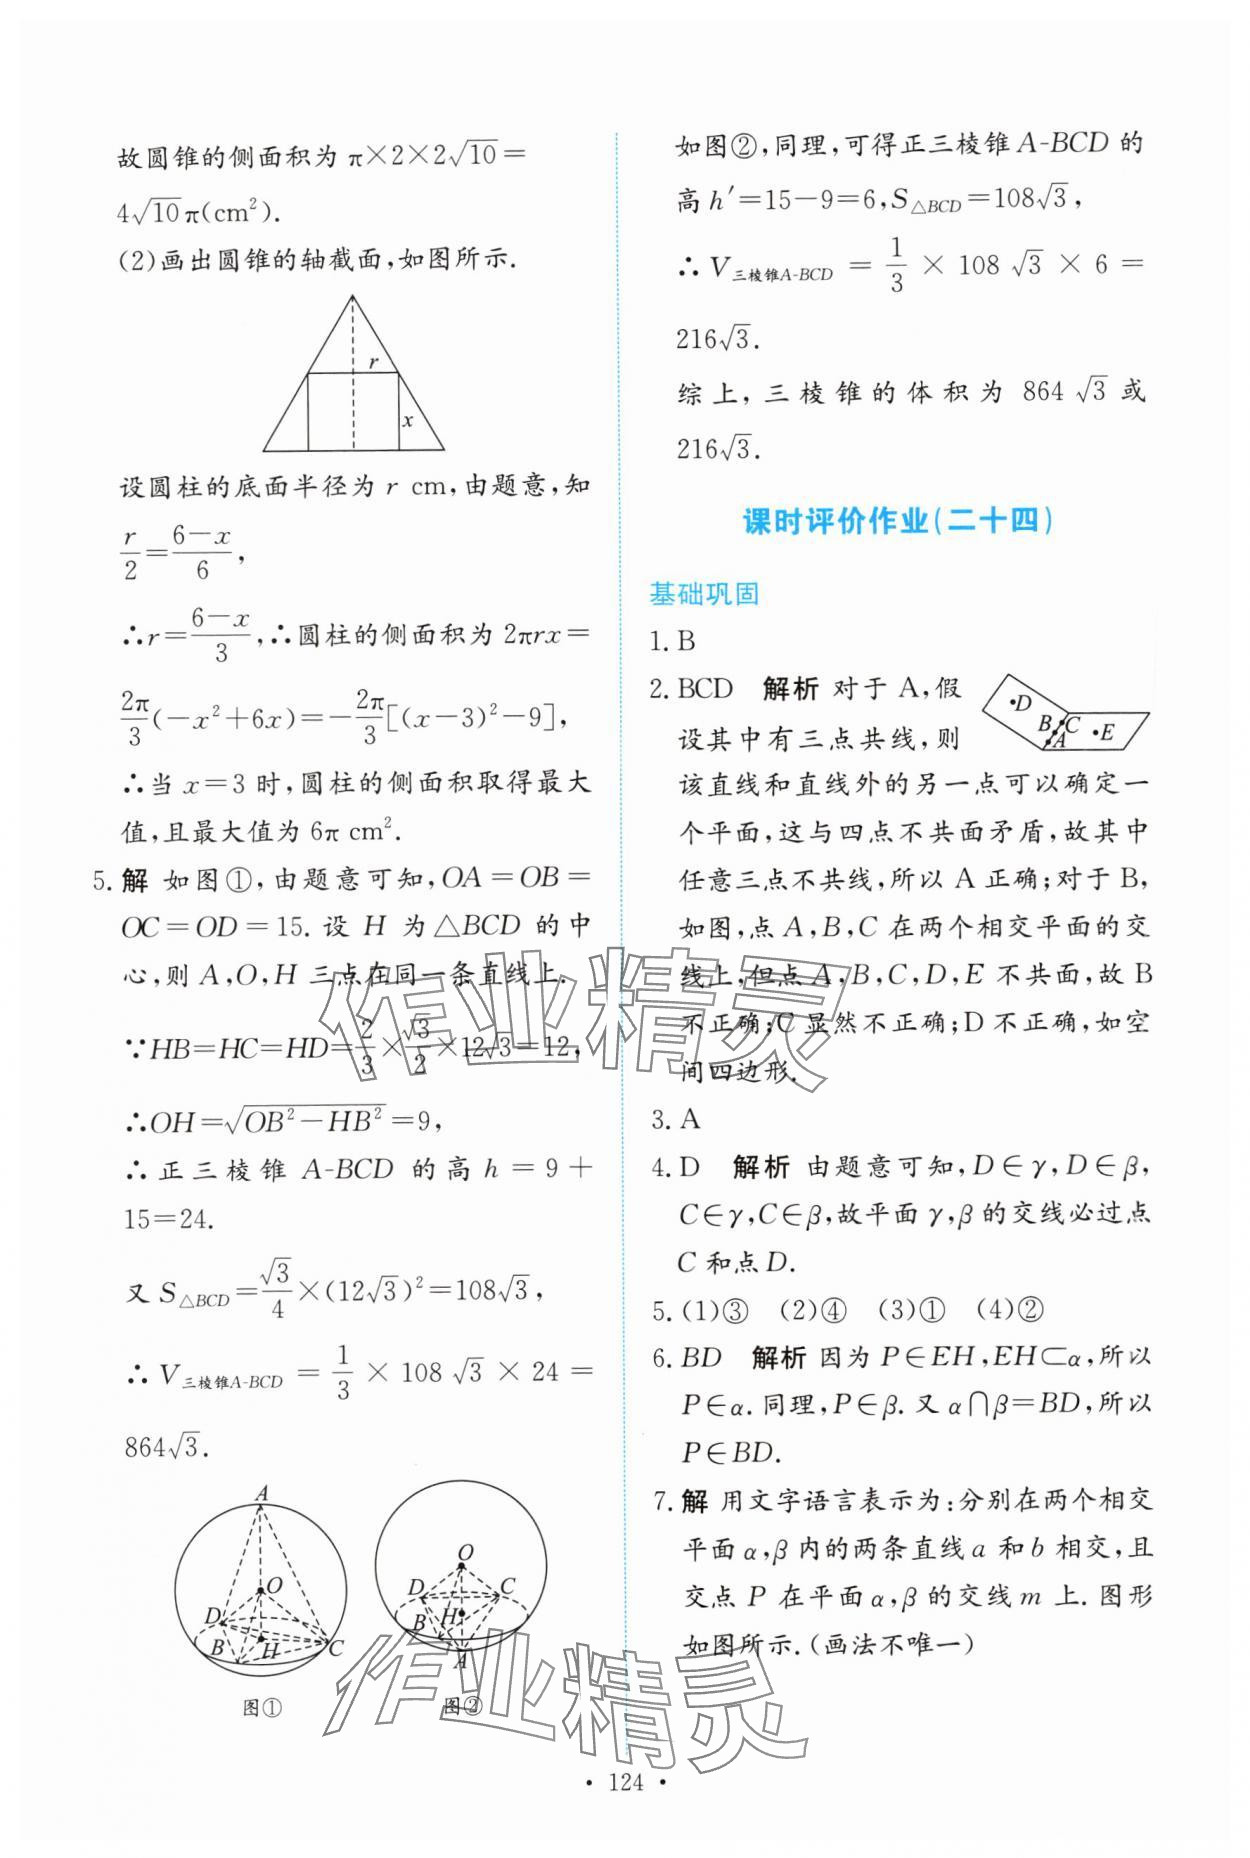 故圆锥的侧面积为 π×2×2√10=
4√10π(cm²).
(2)画出圆锥的轴截面,如图所示.
r
x
设圆柱的底面半径为 r cm,由题意,知
r/2=(6-x)/6,
∴r=(6-x)/3,∴圆柱的侧面积为 2πrx=
2π/3(-x²+6x)=-2π/3[(x-3)²-9],
∴当 x=3 时,圆柱的侧面积取得最大
值,且最大值为 6π cm².
5. 解 如图①,由题意可知,OA=OB=
OC=OD=15. 设 H 为△BCD 的中
心,则 A,O,H 三点在同一条直线上.
∵HB=HC=HD=2/3×√3/2×12√3=12,
∴OH=√(OB²-HB²)=9,
∴正三棱锥 A-BCD 的高 h=9+
15=24.
又 S△BCD=√3/4×(12√3)²=108√3,
∴V三棱锥A-BCD=1/3×108√3×24=
864√3.
A
O
D
B
H
C
图①
O
D
C
H
B
A
图②
如图②,同理,可得正三棱锥 A-BCD 的
高 h′=15-9=6,S△BCD=108√3,
∴V三棱锥A-BCD=1/3×108√3×6=
216√3.
综上,三棱锥的体积为 864√3 或
216√3.
课时评价作业(二十四)
基础巩固
1. B
2. BCD 解析 对于 A,假
设其中有三点共线,则
·D
B
C
A
·E
该直线和直线外的另一点可以确定一
个平面,这与四点不共面矛盾,故其中
任意三点不共线,所以 A 正确;对于 B,
如图,点 A,B,C 在两个相交平面的交
线上,但点 A,B,C,D,E 不共面,故 B
不正确;C 显然不正确;D 不正确,如空
间四边形.
3. A
4. D 解析 由题意可知,D∈γ,D∈β,
C∈γ,C∈β,故平面 γ,β 的交线必过点
C 和点 D.
5. (1)③ (2)④ (3)① (4)②
6. BD 解析 因为 P∈EH,EH⊂α,所以
P∈α. 同理,P∈β. 又 α∩β=BD,所以
P∈BD.
7. 解 用文字语言表示为:分别在两个相交
平面 α,β 内的两条直线 a 和 b 相交,且
交点 P 在平面 α,β 的交线 m 上. 图形
如图所示.(画法不唯一)
作业精灵
作业精灵
· 124 ·